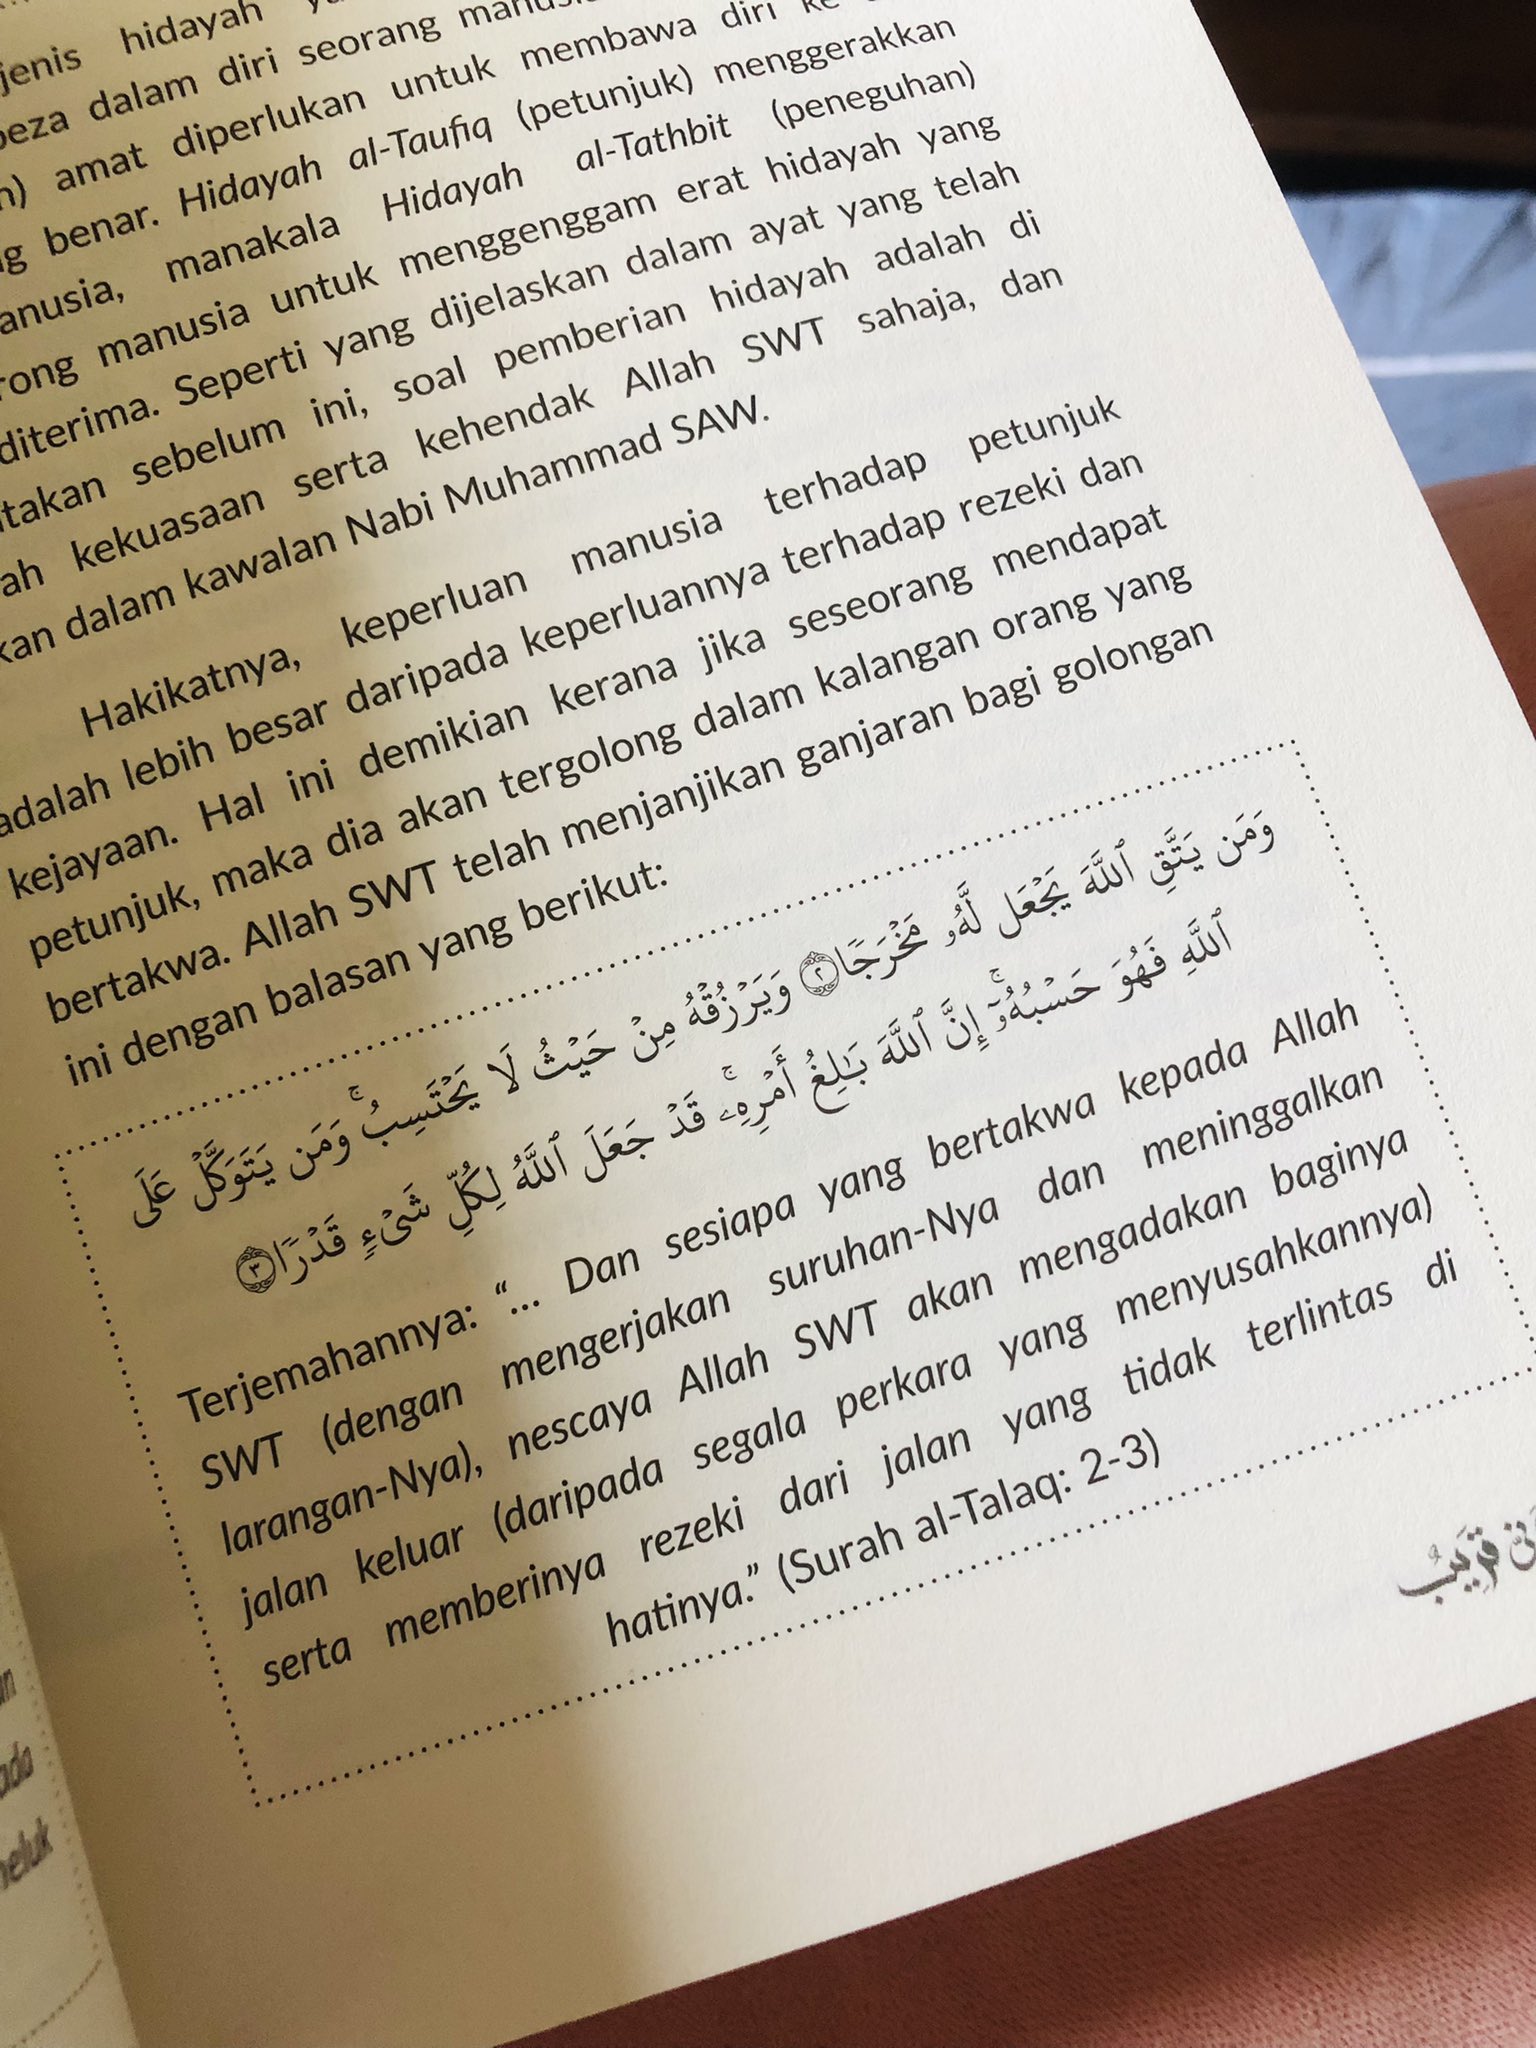 jenis hidayah
beza dalam diri seorang
amat diperlukan untuk membawa diri ke
benar. Hidayah al-Taufiq (petunjuk) menggerakkan
manakala Hidayah al-Tathbit (peneguhan)
manusia untuk menggenggam erat hidayah yang
diterima. Seperti yang dijelaskan dalam ayat yang telah
sebelum ini, soal pemberian hidayah adalah di
kekuasaan serta kehendak Allah SWT sahaja, dan
dalam kawalan Nabi Muhammad SAW.
Hakikatnya, keperluan manusia terhadap petunjuk
adalah lebih besar daripada keperluannya terhadap rezeki dan
kejayaan. Hal ini demikian kerana jika seseorang mendapat
petunjuk, maka dia akan tergolong dalam kalangan orang yang
bertakwa. Allah SWT telah menjanjikan ganjaran bagi golongan
ini dengan balasan yang berikut:
وَمَن يَتَّقِ ٱللَّهَ يَجْعَل لَّهُۥ مَخْرَجًا ٢ وَيَرْزُقْهُ مِنْ حَيْثُ لَا يَحْتَسِبُ ۚ وَمَن يَتَوَكَّلْ عَلَى
ٱللَّهِ فَهُوَ حَسْبُهُۥٓ ۚ إِنَّ ٱللَّهَ بَٰلِغُ أَمْرِهِۦ ۚ قَدْ جَعَلَ ٱللَّهُ لِكُلِّ شَىْءٍ قَدْرًا ٣
Terjemahannya: “... Dan sesiapa yang bertakwa kepada Allah
SWT (dengan mengerjakan suruhan-Nya dan meninggalkan
larangan-Nya), nescaya Allah SWT akan mengadakan baginya
jalan keluar (daripada segala perkara yang menyusahkannya)
serta memberinya rezeki dari jalan yang tidak terlintas di
hatinya.” (Surah al-Talaq: 2-3)
قريب